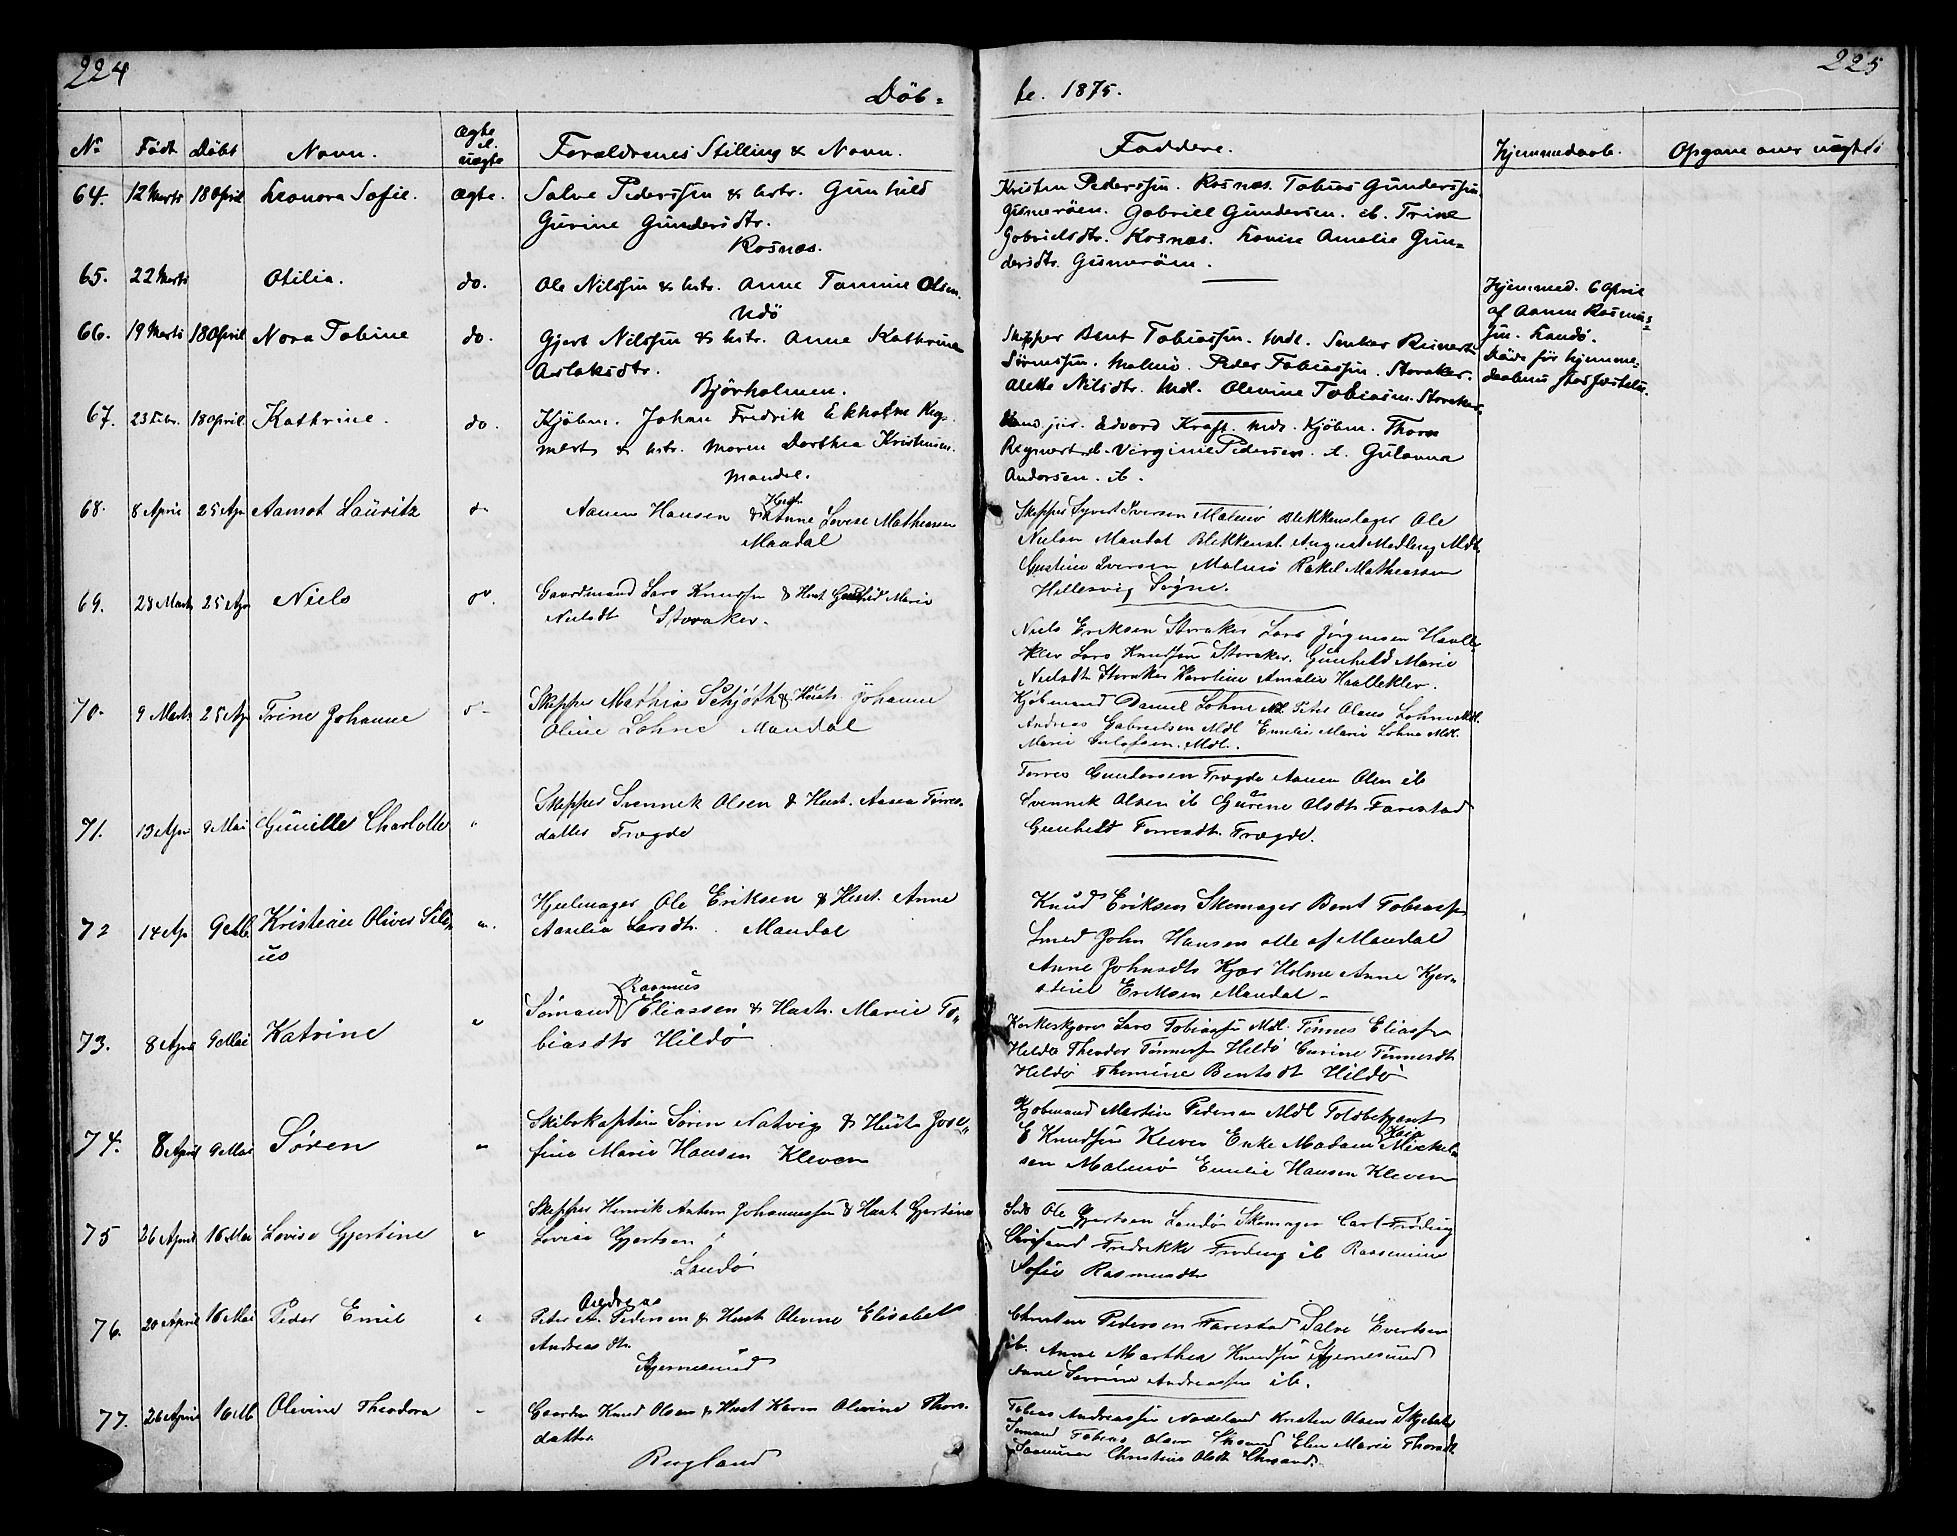 224
225
Döb-
te. 1875.
No Født Döbt Navn. Ægte el. uægte Forældrenes Stilling & Navn. Faddere. Hjemmedaab.
64. 12 Marts 18 April Leonora Sofie. Ægte. Salve Pederssen & hstr. Gunhild
Gurine Gundersdtr.
Rosnæs.
Kristen Pederssen. Rosnæs. Tobias Gunderssen
Gabriel Gundersen. ib. Trine
Gabrielsdtr. Rosnæs. Lovise Amalie Gun-
dersdtr.
65. 22 Marts Otilia. do. Ole Nilssen & hstr. Anne Tomine Olsen.
Udö
Hjemmed. 6 April
af Aanen Rasmus-
sen. Landö.
Döde før hjemme-
66. 19 Marts 18 April Nora Tobine do. Gjert Nilssen & hstr. Anne Kathrine
Aslaksdtr.
Bjørholmen.
Skipper Bent Tobiassen. Mdl.
Malmö. Peder Tobiassen. Storaker.
Nilsdtr. Mdl. Olevine Tobiasen. Storaker.
67. 23 Febr. 18 April Kathrine. do. Kjöbm. Johan Fredrik Ekholm Reg-
mert & hstr. Maren Dorthea Kristensen.
Mandal.
Edvard Kraft. Mdl. Kjöbm. Thora
Regmert ib. Virginie Pedersen. ib. Gulanna
Andersen. ib.
68. 8 April 25 Apr Aamot Lauritz do Aanen Hansen & Hust. Anne Lovise Mathiassen
Mandal
Skipper Syvert Iversen Malmö Blikkenslager Ole
Nielsen Mandal Blikkensl. August Mdl.
Gustine Iversen Malmö Rakel Mathiassen
Hillesvig Søgne.
69. 28 Marts 25 Apr Niels do. Gaardmand Lars Knudsen & Hust Gunhild Marie
Nielsdt Storaker.
Niels Eriksen Storaker Lars Jörgensen Haalle-
klev Lars Knudsen Storaker. Gunhild Marie
Nielsdt Storaker Karoline Amalie Haalleklev.
70. 9 Marts 25 Apr Trine Johanne do Skipper Mathias Schjöth & Hustr. Johanne
Oline Lohne Mandal
Kjöbmand Daniel Lohne Mdl Peter Olaus Lohne Mdl.
Andreas Gabrielsen Mdl Emilie Marie Lohne Mdl.
Marie Mdl.
71. 13 Apr 9 Mai Gunille Charlotte " Skipper Svennik Olsen & Hust. Aasea Torres-
datter Trægde
Torres Gundersen Trægde Aanen Olsen ib
Svennik Olsen ib Gurine Olsdtr Farestad
Gunhild Torresdtr. Trægde.
72 14 Ap. 9 Mai Kristiane Oliver
us
" Hjulmager Ole Eriksen & Hust. Anne
Aasilia Larsdtr. Mandal
Knud Eriksen Skomager Bent Tobiassen
Smed John Hansen alle af Mandal
Anne Johnsdtr Kjær Holme Anne Kjer-
stine Eriksen Mandal
73. 8 April 9 Mai Katrine " Sömand Rasmus Eliassen & Hustr. Marie To-
biasdtr Hildö
Kirkeskjærer Lars Tobiassen Mdl. Tønnes Eliassen
Hildö Theodor Tønnessen Hildö Gurine Tønnesdtr
Hildö Thomine Bentsdt Hildö
74. 8 April 9 Mai Søren " Skibskaptein Søren Natvig & Hust. Jose-
fine Marie Hansen Kleven
Kjöbmand Martin Pedersen Mdl Toldbetjent
E Knudsen Kleven Enke Madam Kaja Mickel-
sen Malmö Emilie Hansen Kleven
75 26 April 16 Mai Lovise Gjertine " Skipper Henrik Anton Johannessen & Hust Gjertine
Lovise Gjertsen
Landö
Ole Gjertsen Landö Skomager Carl Fröding
Chrsand Fredrikke Fröding ib Rasmine
Sofie Rasmusdtr
76. 20 April 16 Mai Peder Emil " Peder Andreas A. Pedersen & Hust Olevine Elisabet
Andreasdtr.
Hjernesund
Christen Pedersen Farestad Salve Evertsen
ib. Anne Marthea Knudsen Hjernesund
Anne Andreassen ib.
77. 26 April 16 M Olevine Theodora " Gaardm Knud Olsen & Hust Karen Olevine Thors-
datter.
Rugland
Tobias Andreassen Nodeland Kristen Olsen
Sömand Tobias Olsen Elen Marie Thorsdt
Christine Olsdt Chrsand.